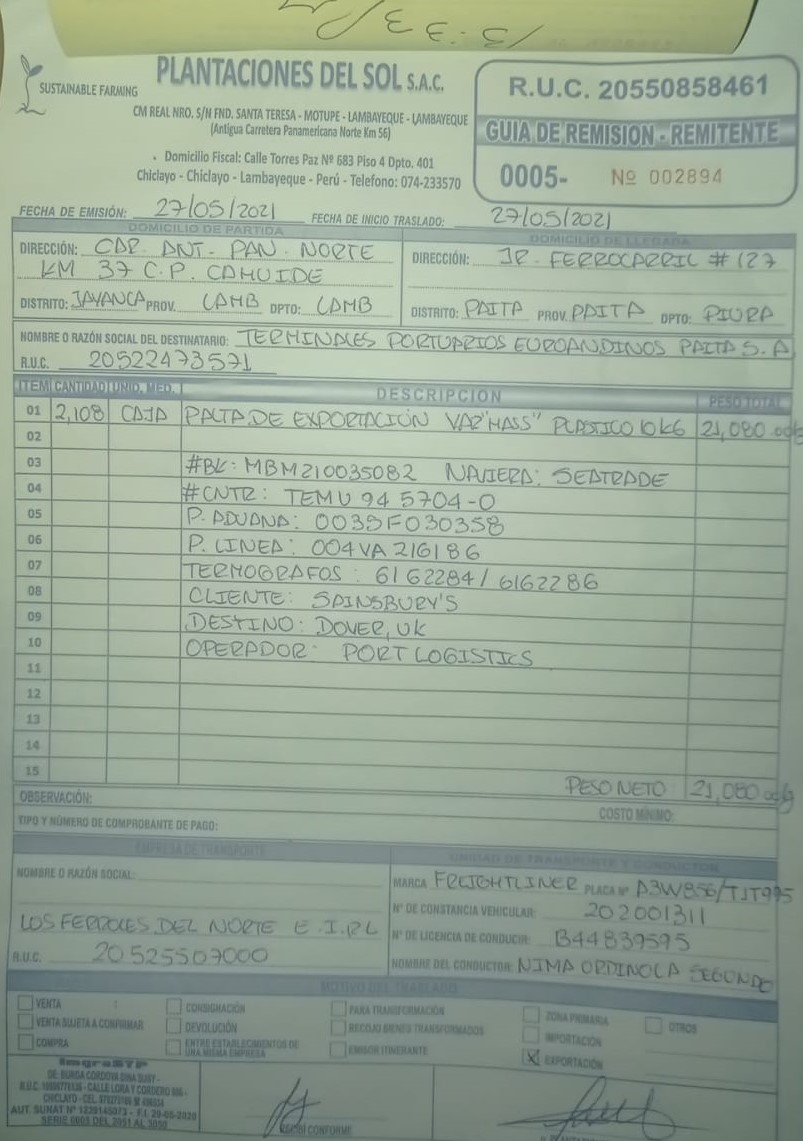 SUSTAINABLE FARMING
PLANTACIONES DEL SOL S.A.C.
CM REAL NRO. S/N FND. SANTA TERESA - MOTUPE - LAMBAYEQUE - LAMBAYEQUE
(Antigua Carretera Panamericana Norte Km 56)
Domicilio Fiscal: Calle Torres Paz Nº 683 Piso 4 Dpto. 401
Chiclayo - Chiclayo - Lambayeque - Perú - Telefono: 074-233570
R.U.C. 20550858461
GUIA DE REMISION - REMITENTE
0005- Nº 002894
FECHA DE EMISIÓN: 27/05/2021 FECHA DE INICIO TRASLADO: 27/05/2021
DOMICILIO DE PARTIDA
DIRECCIÓN: CAR. ANT. PAN. NORTE
KM 37 C.P. CAHUIDE
DISTRITO: JAYANCA PROV. LAMB DPTO: LAMB
DOMICILIO DE LLEGADA
DIRECCIÓN: JR. FERROCARRIL # 127
DISTRITO: PAITA PROV. PAITA DPTO: PIURA
NOMBRE O RAZÓN SOCIAL DEL DESTINATARIO: TERMINALES PORTUARIOS EUROANDINOS PAITA S.A
R.U.C. 20522473571
ITEM CANTIDAD UNID. MED. DESCRIPCION PESO TOTAL
01 2,108 CAJA PALTA DE EXPORTACIÓN VAR "HASS" PLASTICO 10KG 21,080.00kg
02
03 #BK: MBM210035082 NAVIERA: SEATRADE
04 #CNTR: TEMU 94 5704-0
05 P. ADUANA: 0035F030358
06 P. LINEA: 004VA216186
07 TERMOGRAFOS: 6162284 / 6162286
08 CLIENTE: SAINSBURY'S
09 DESTINO: DOVER, UK
10 OPERADOR: PORT LOGISTICS
11
12
13
14
15 PESO NETO: 21,080.00kg
OBSERVACIÓN: COSTO MÍNIMO:
TIPO Y NÚMERO DE COMPROBANTE DE PAGO:
EMPRESA DE TRANSPORTE
NOMBRE O RAZÓN SOCIAL:
LOS FERROLES DEL NORTE E.I.RL
R.U.C. 20525507000
UNIDAD DE TRANSPORTE Y CONDUCTOR
MARCA FREIGHTLINER PLACA Nº A3W856/T1T995
Nº DE CONSTANCIA VEHICULAR: 202001311
Nº DE LICENCIA DE CONDUCIR: B44839595
NOMBRE DEL CONDUCTOR: NIMA ORDINOLA SEGUNDO
MOTIVO DEL TRASLADO
VENTA
VENTA SUJETA A CONFIRMAR
COMPRA
CONSIGNACIÓN
DEVOLUCIÓN
ENTRE ESTABLECIMIENTOS DE
UNA MISMA EMPRESA
PARA TRANSFORMACIÓN
RECOJO BIENES TRANSFORMADOS
EMISOR ITINERANTE
ZONA PRIMARIA
IMPORTACIÓN
X EXPORTACIÓN
OTROS
DE: BURGA CORDOVA DINA SUSY -
CHICLAYO - CEL.
AUT. SUNAT Nº 1239145073 - F.I. 29-05-2020
SERIE 0005 DEL 2051 AL 3050
RECIBÍ CONFORME